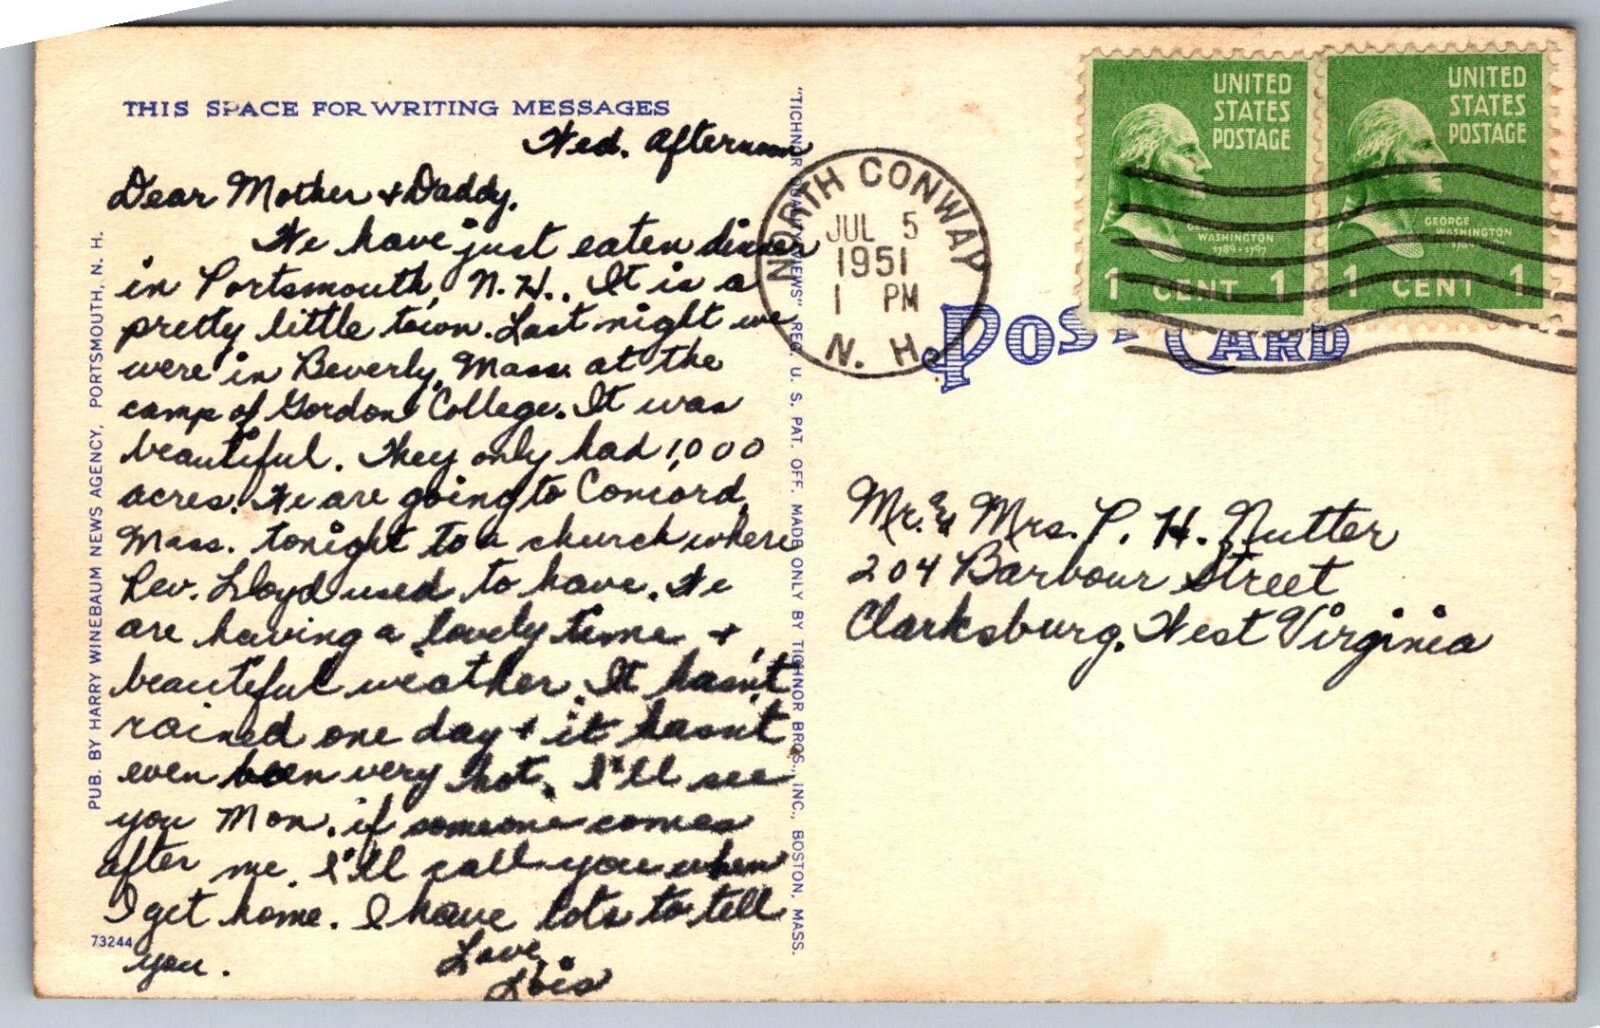 THIS SPACE FOR WRITING MESSAGES
Wed. Afternoon
Dear Mother + Daddy,
We have just eaten dinner
in Portsmouth, N.H.. It is a
pretty little town. Last night we
were in Beverly, Mass. at the
camp of Gordon College. It was
beautiful. They only had 1,000
acres. We are going to Concord,
Mass. tonight to a church where
Rev. Lloyd used to have. We
are having a lovely time +
beautiful weather. It hasn't
rained one day + it hasn't
even been very hot. I'll see
you Mon. if someone comes
after me. I'll call you when
I get home. I have lots to tell
you.
Love,
Lois
73244
PUB. BY HARRY WINEBAUM NEWS AGENCY, PORTSMOUTH, N. H.
"TICHNOR QUALITY VIEWS" REG. U. S. PAT. OFF. MADE ONLY BY TICHNOR BROS., INC., BOSTON, MASS.
NORTH CONWAY
JUL 5
1951
1 PM
N. H.
UNITED
STATES
POSTAGE
GEORGE
WASHINGTON
1789-1797
1 CENT 1
UNITED
STATES
POSTAGE
GEORGE
WASHINGTON
1 CENT 1
POST CARD
Mr. & Mrs. P. H. Nutter
204 Barbour Street
Clarksburg, West Virginia